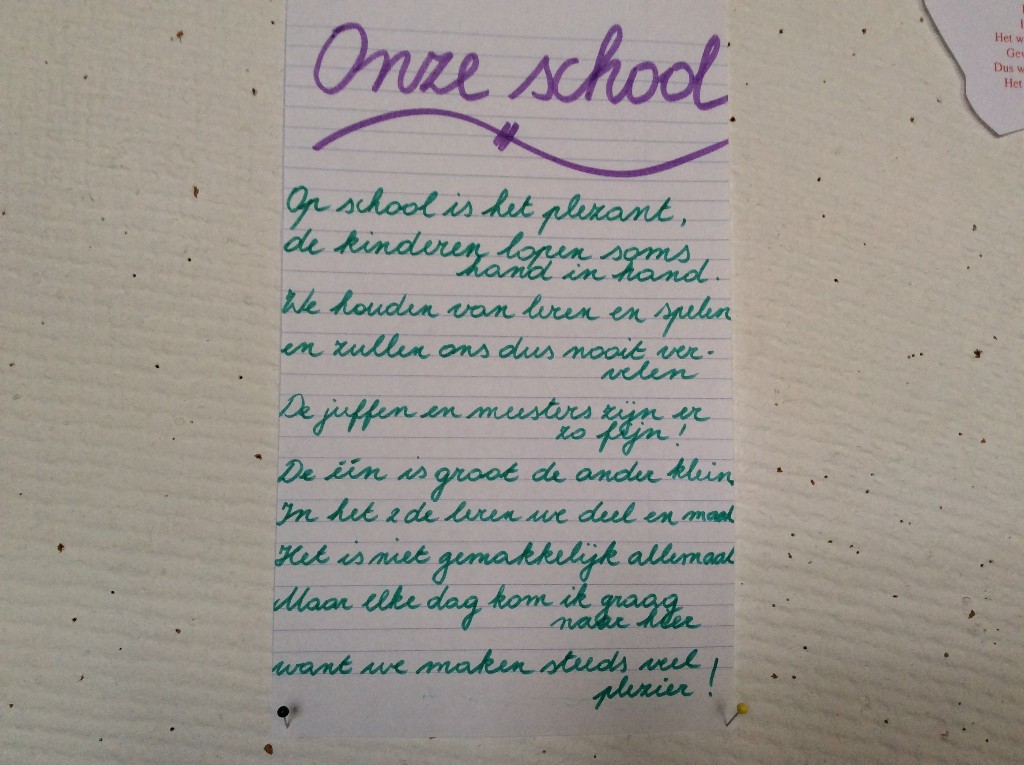 Onze school
Op school is het plezant,
de kinderen lopen soms
hand in hand.
We houden van leren en spelen
en zullen ons dus nooit ver-
velen
De juffen en meesters zijn er
zo fijn!
De één is groot de ander klein
In het 2de leren we deel en maal
Het is niet gemakkelijk allemaal
Maar elke dag kom ik graag
naar hier
want we maken steeds veel
plezier!
Het w
Gev
Dus w
Het